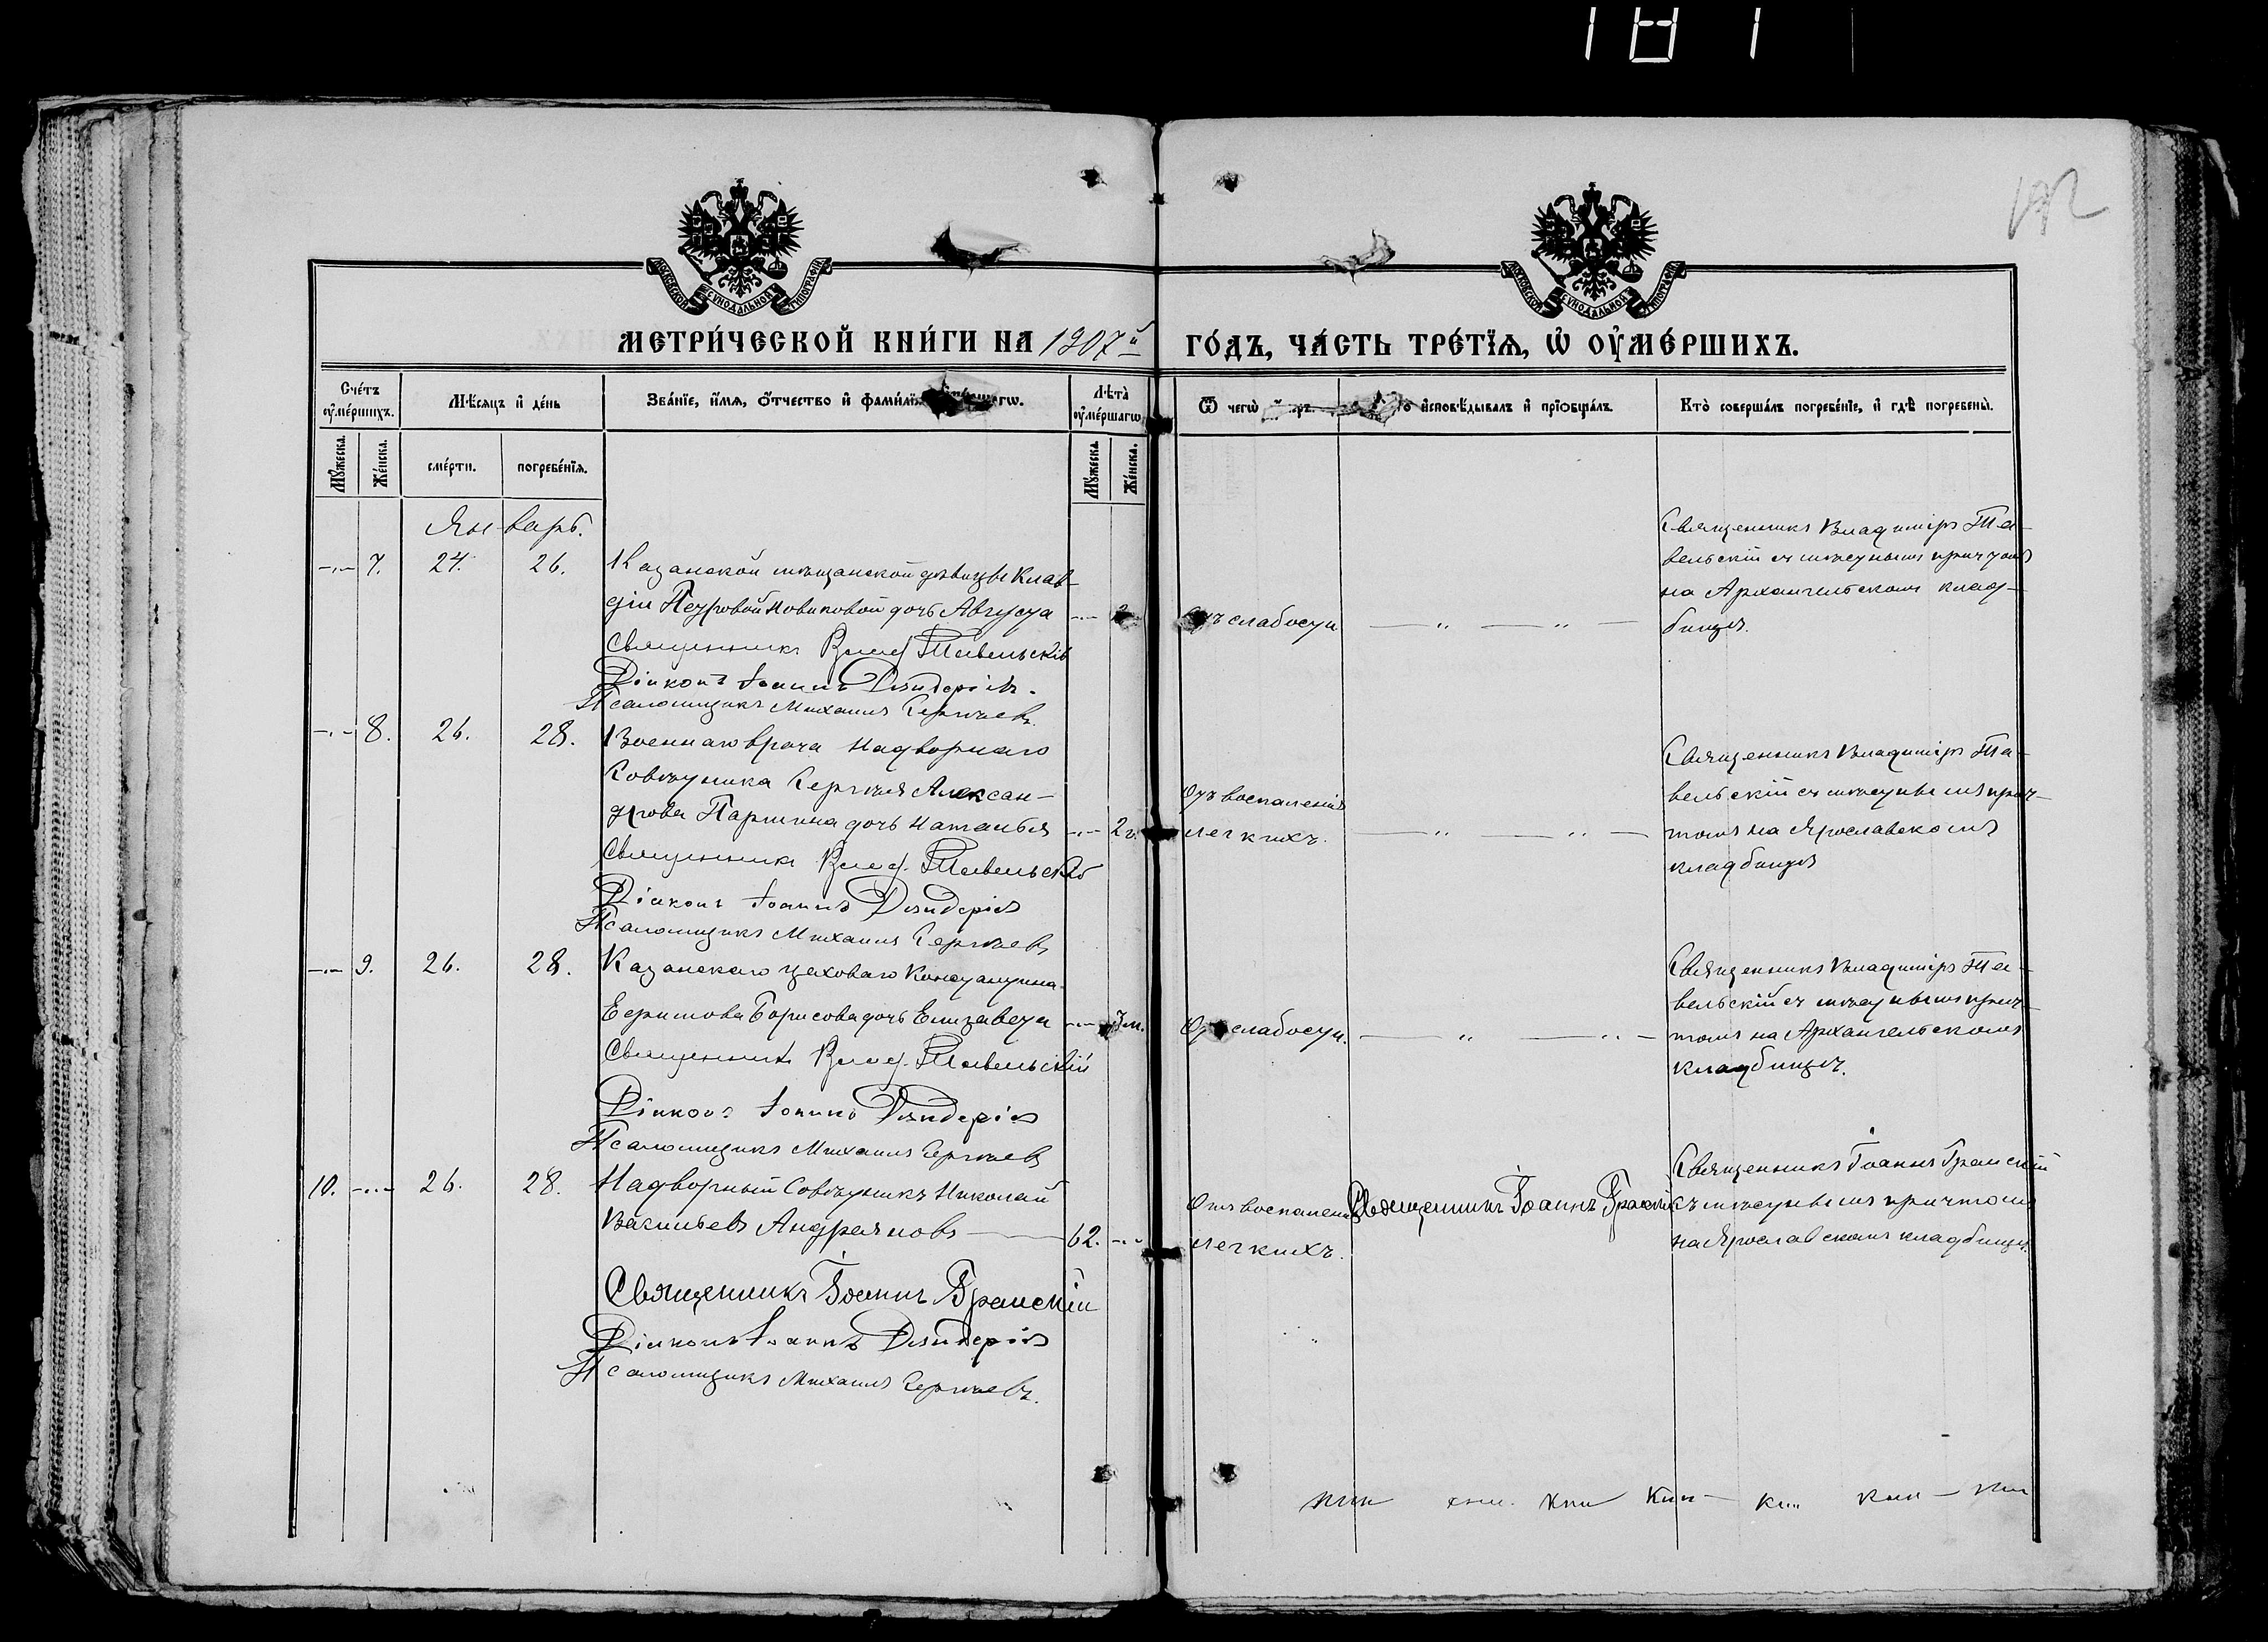 181
192
МОСКОВСКОЙ СѴНОДАЛЬНОЙ ТИПОГРАФІИ
МОСКОВСКОЙ СѴНОДАЛЬНОЙ ТИПОГРАФІИ
МЕТРИ́ЧЕСКОЙ КНИ́ГИ НА 1907й ГО́ДЪ, ЧА́СТЬ ТРЕ́ТЇѦ, Ѡ҆ ОУ҆МЕ́РШИХЪ.
Сче́тъ оу҆ме́ршихъ.
Мꙋ́жеска.
Же́нска.
Мѣ́сѧцъ и҆ де́нь
сме́рти.
погребе́нїѧ.
Зва́нїе, и҆́мѧ, ѻ҆́тчество и҆ фами́лїѧ
Лѣта̀ оу҆ме́ршагѡ
Мꙋ́жеска
Же́нска.
Ѿ чегѡ̀
и҆сповѣ́дывалъ и҆ прїѡбща́лъ.
Кто̀ соверша́лъ погребе́нїе, и҆ гдѣ̀ погребены̀.
Январь.
7. 24. 26.
Казанской мѣщанской дѣвицы Клав-
діи Петровой Новиковой дочь Августа
Священникъ Влад. Тавельскій
Діаконъ Іоаннъ
Псаломщикъ Михаилъ Сергѣевъ.
Отъ слабости
Священникъ Владиміръ Та-
вельскій съ мѣстнымъ причтомъ
на Архангельскомъ клад-
бищѣ.
8. 26. 28.
Военнаго врача Надворнаго
Совѣтника Сергѣя Алексан-
дрова Паршина дочь Наталья
2 г.
Священникъ Влад. Тавельскій
Діаконъ Іоаннъ
Псаломщикъ Михаилъ Сергѣевъ
Отъ воспаленія
легкихъ.
Священникъ Владиміръ Та-
вельскій съ мѣстнымъ прич-
томъ на Ярославскомъ
кладбищѣ
9. 26. 28.
Казанскаго цеховаго Константина
Ефимова Борисова дочь Елизавета
3 м.
Священникъ Влад. Тавельскій
Діаконъ Іоаннъ
Псаломщикъ Михаилъ Сергѣевъ
Отъ слабости.
Священникъ Владиміръ Та-
вельскій съ мѣстнымъ прич-
томъ на Архангельскомъ
кладбищѣ.
10. 26. 28.
Надворный Совѣтникъ Николай
Васильевъ Андреяновъ
62.
Священникъ Іоаннъ Гранскій
Діаконъ Іоаннъ
Псаломщикъ Михаилъ Сергѣевъ.
Отъ воспаленія
легкихъ.
Священникъ Іоаннъ
Священникъ Іоаннъ Гранскій
съ мѣстнымъ причтомъ
на Ярославскомъ кладбищѣ.